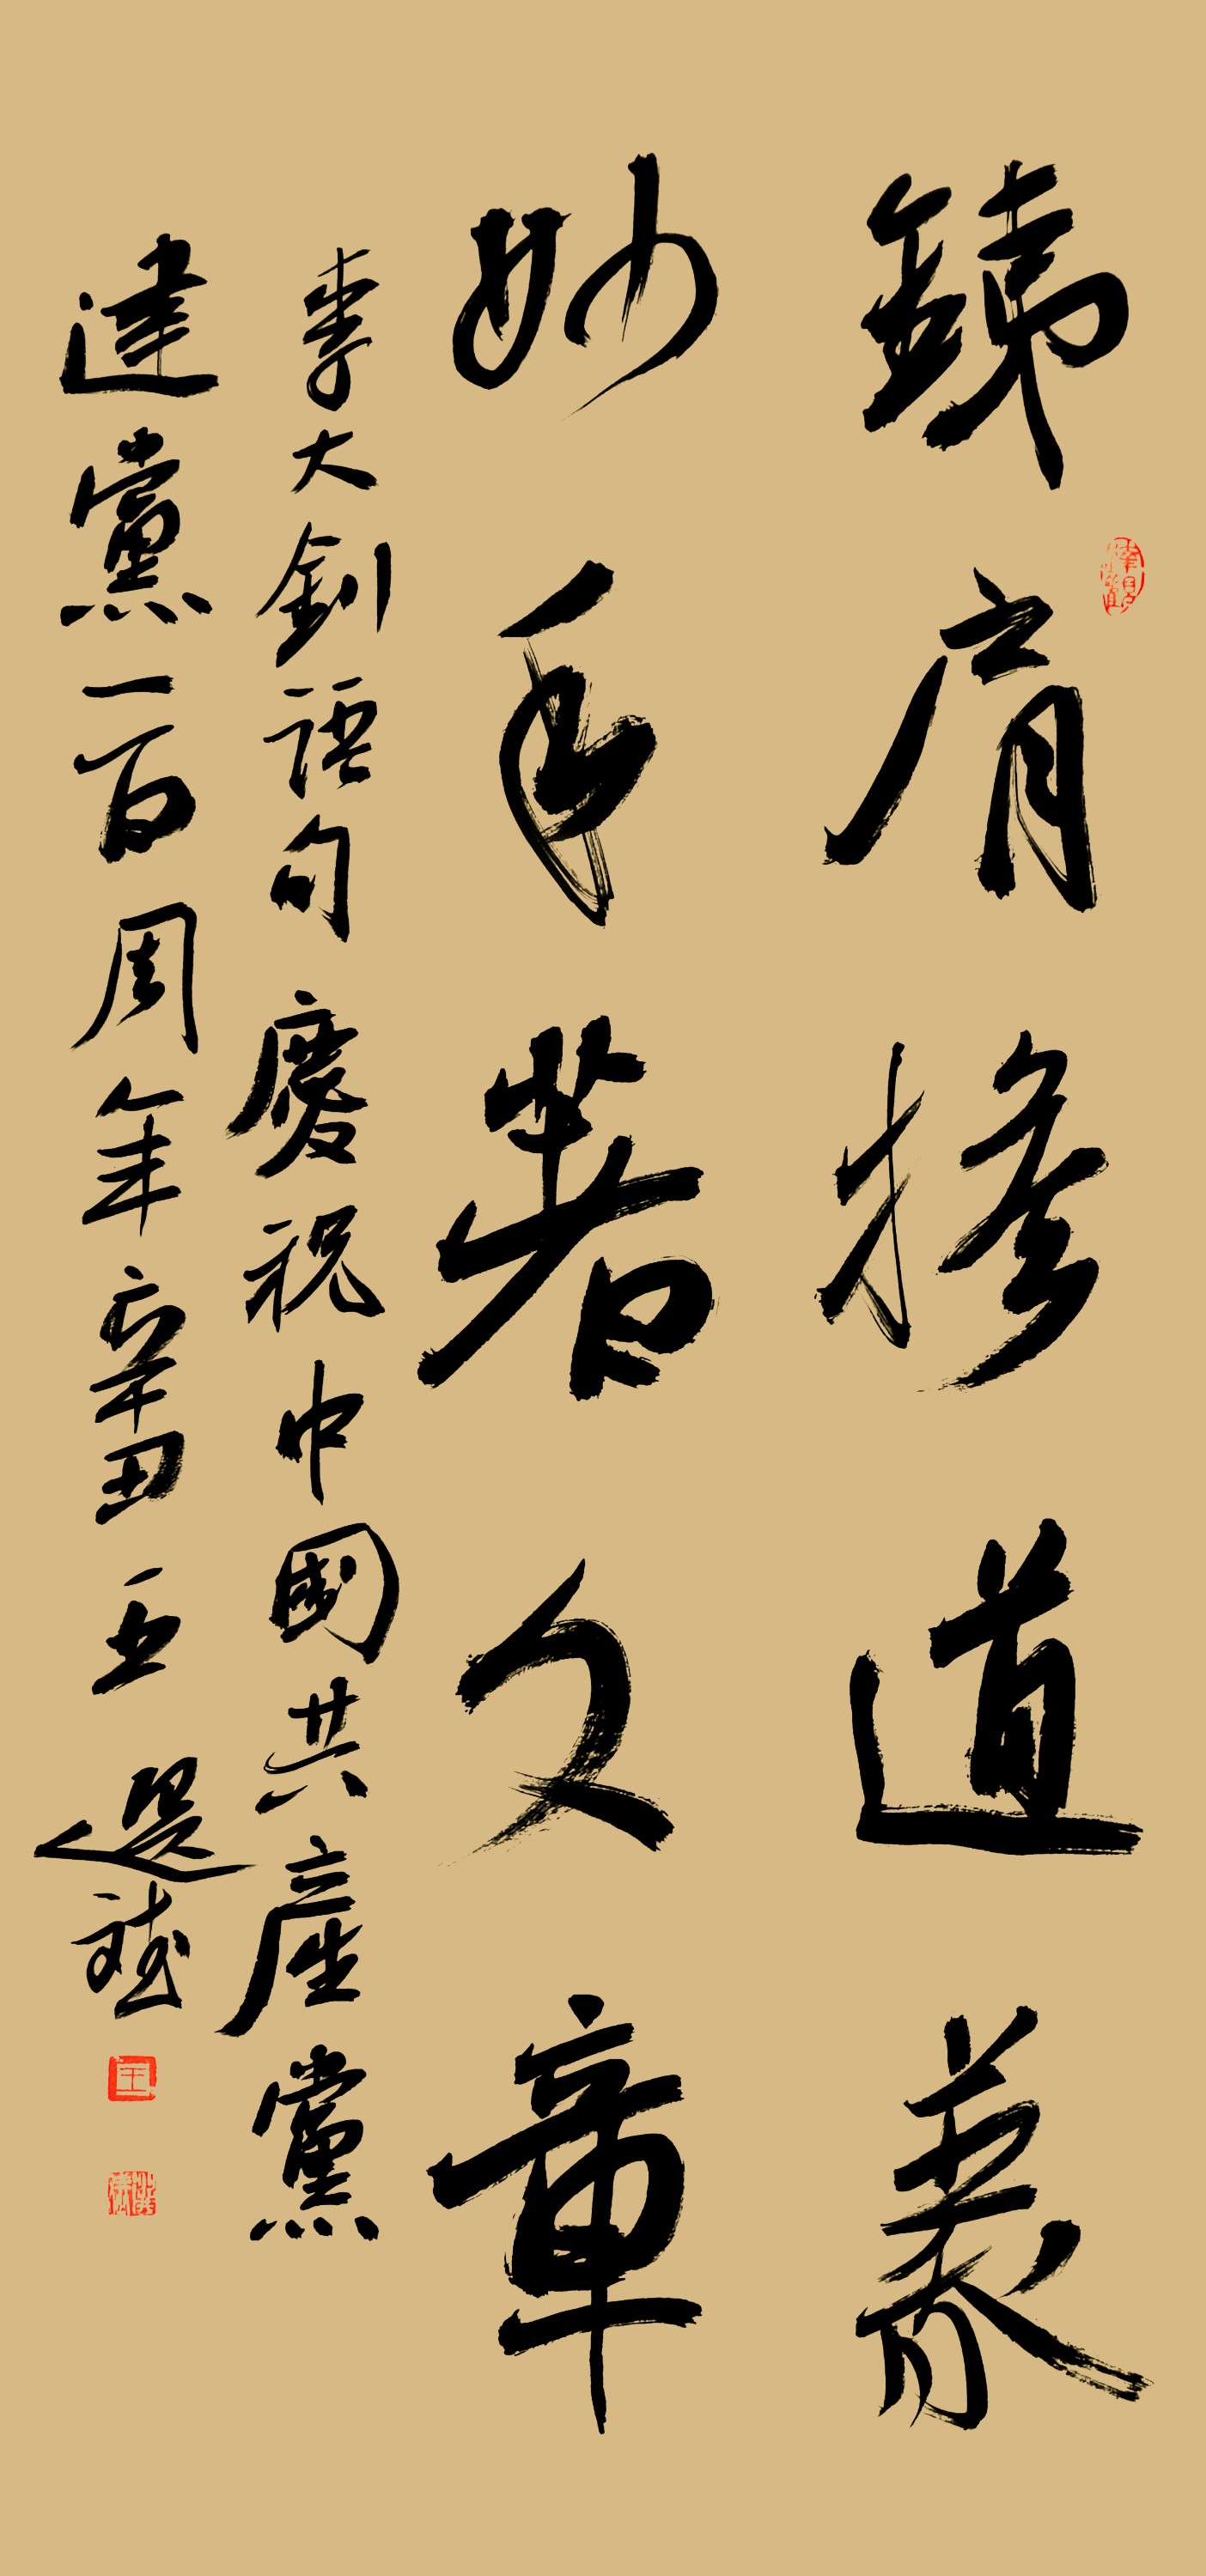 銕肩擔道義
妙手著文章
李大釗語句慶祝中國共產黨
建黨一百周年辛丑王選斌
王